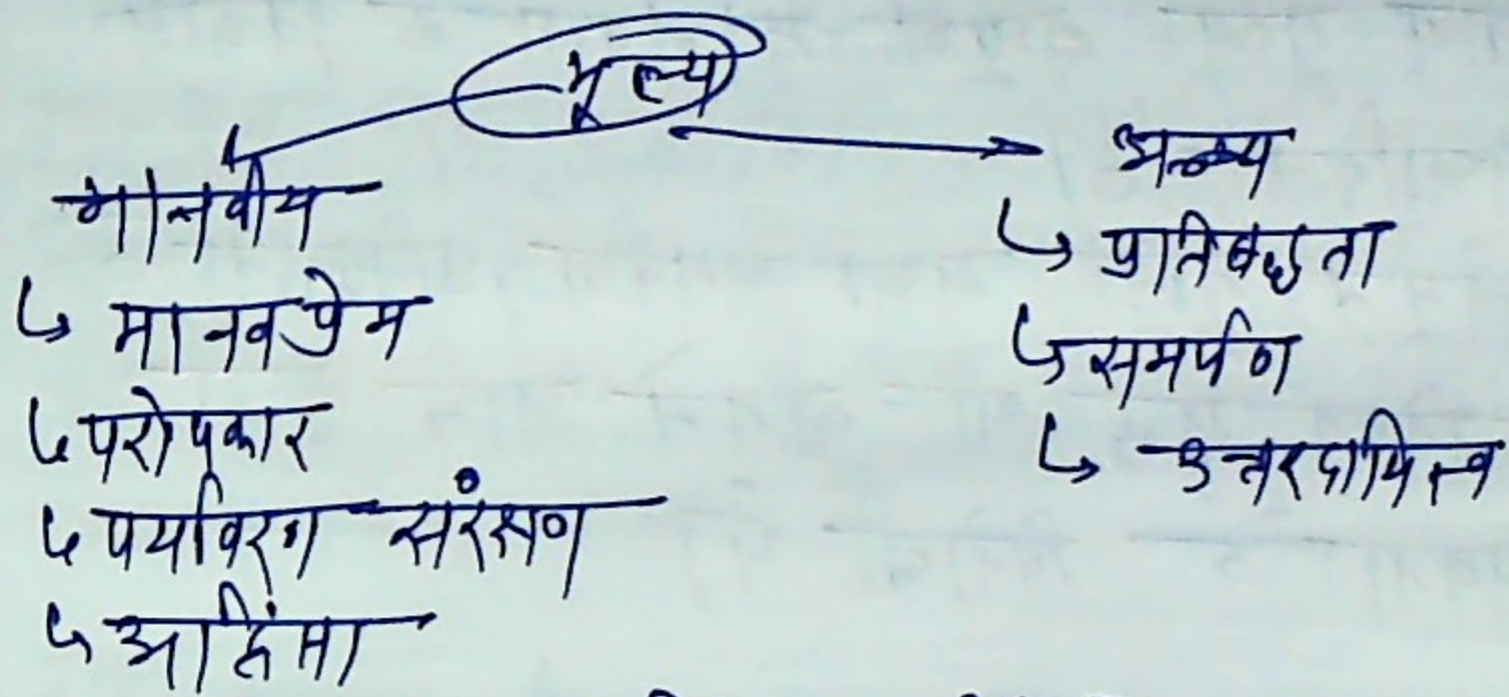 मूल्य
मानवीय
↳ मानवप्रेम
↳ परोपकार
↳ पर्यावरण संरक्षण
↳ अहिंसा
अन्य
↳ प्रतिबद्धता
↳ समर्पण
↳ उत्तरदायित्व